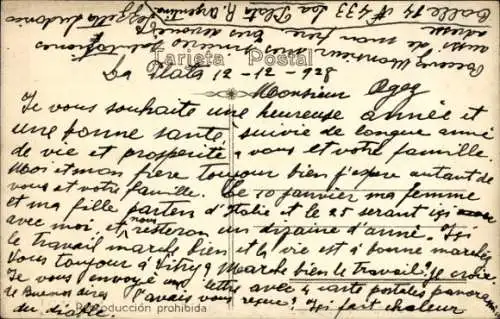 Calle 14 # 433 La Plata R. Argentina
Tarjeta Postal
La Plata 12-12-928
Monsieur Ogez
Je vous souhaite une heureuse année et
une bonne santé, suivie de longue anné
de vie et prosperité, vous et votre famille.
Moi et mon frère toujour bien j'espere autant de
vous et votre famille. Le 10 janvier ma femme
et ma fille parten d'Italie et le 25 serant içi
avec moi, et nous resteron un dizaine d'anné. Içi
le travail marche bien et la vie est à bonne marché.
Vous toujour à Vitry? Marche bien le travail? Je croie.
Je vous envoyé une lettre avec 4 carte postales panorame
de Buenos Aires l'avais vous reçue? Içi fait chaleur
du diable.
Reproducción prohibida